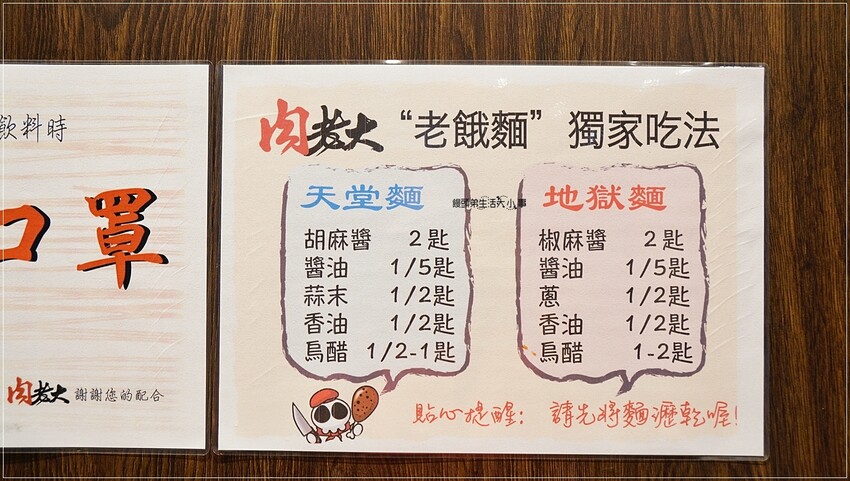 飲料時
口罩
肉老大 謝謝您的配合
肉老大 “老餓麵” 獨家吃法
天堂麵
胡麻醬 2匙
醬油 1/5匙
蒜末 1/2匙
香油 1/2匙
烏醋 1/2-1匙
饅頭弟生活大小事
地獄麵
椒麻醬 2匙
醬油 1/5匙
蔥 1/2匙
香油 1/2匙
烏醋 1-2匙
貼心提醒: 請先將麵瀝乾喔!